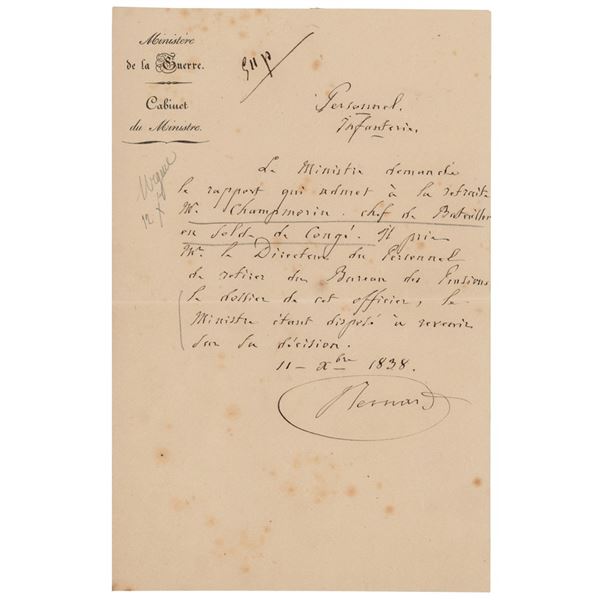 Ministère
de la Guerre.
Cabinet
du Ministre.
Personnel.
Infanterie.
Urgent
12 X
Le Ministre demande
le rapport qui admet à la retraite
Mr. Champmorin. chef de Bataillon
en solde de Congé. Il prie
Mr. le Directeur du Personnel
de retirer du Bureau des Pensions
le dossier de cet officier, le
Ministre étant disposé à revenir
sur sa décision.
11 - Xbre 1838.
Bernard